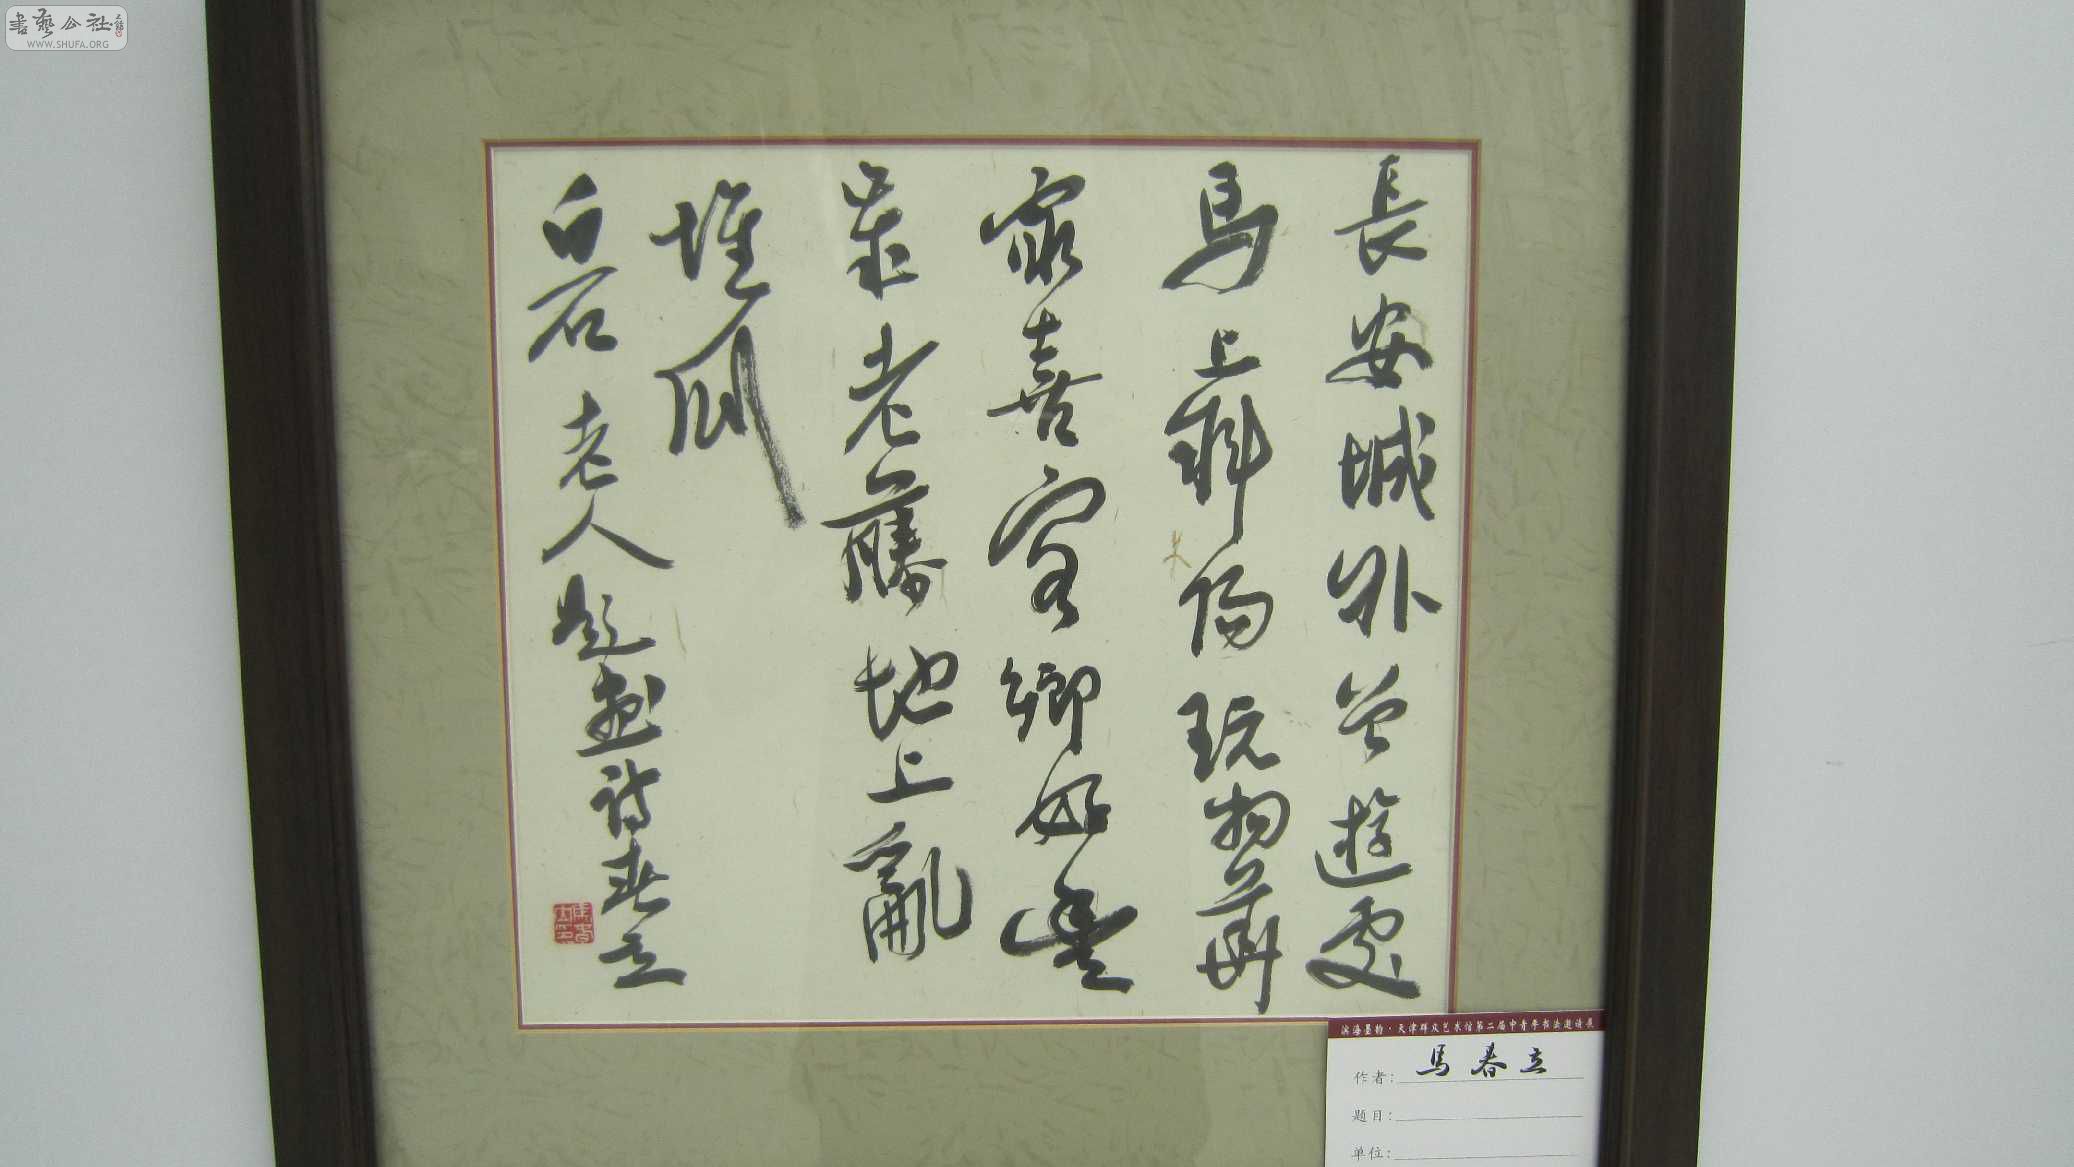 書藝公社
WWW.SHUFA.ORG
長安城外曾遊處
馬上斜陽玩物華
最喜客鄉好豐
歲老藤地上亂
堆瓜
白石老人題畫詩春立
滨海墨韵·天津群众艺术馆第二届中青年书法邀请展
作者：馬春立
题目：
单位：